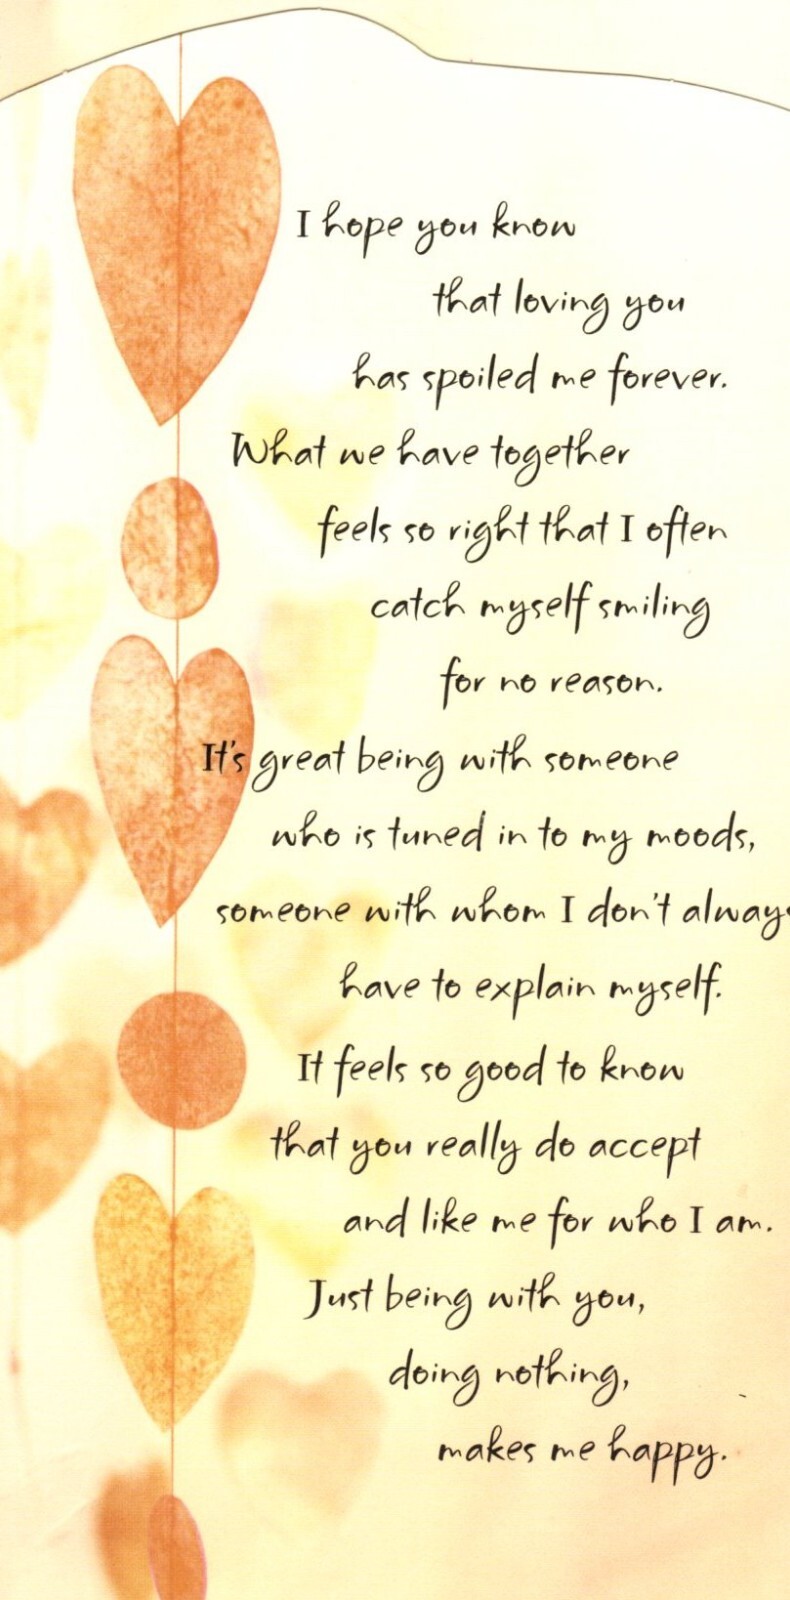 I hope you know
that loving you
has spoiled me forever.
What we have together
feels so right that I often
catch myself smiling
for no reason.
It's great being with someone
who is tuned in to my moods,
someone with whom I don't always
have to explain myself.
It feels so good to know
that you really do accept
and like me for who I am.
Just being with you,
doing nothing,
makes me happy.